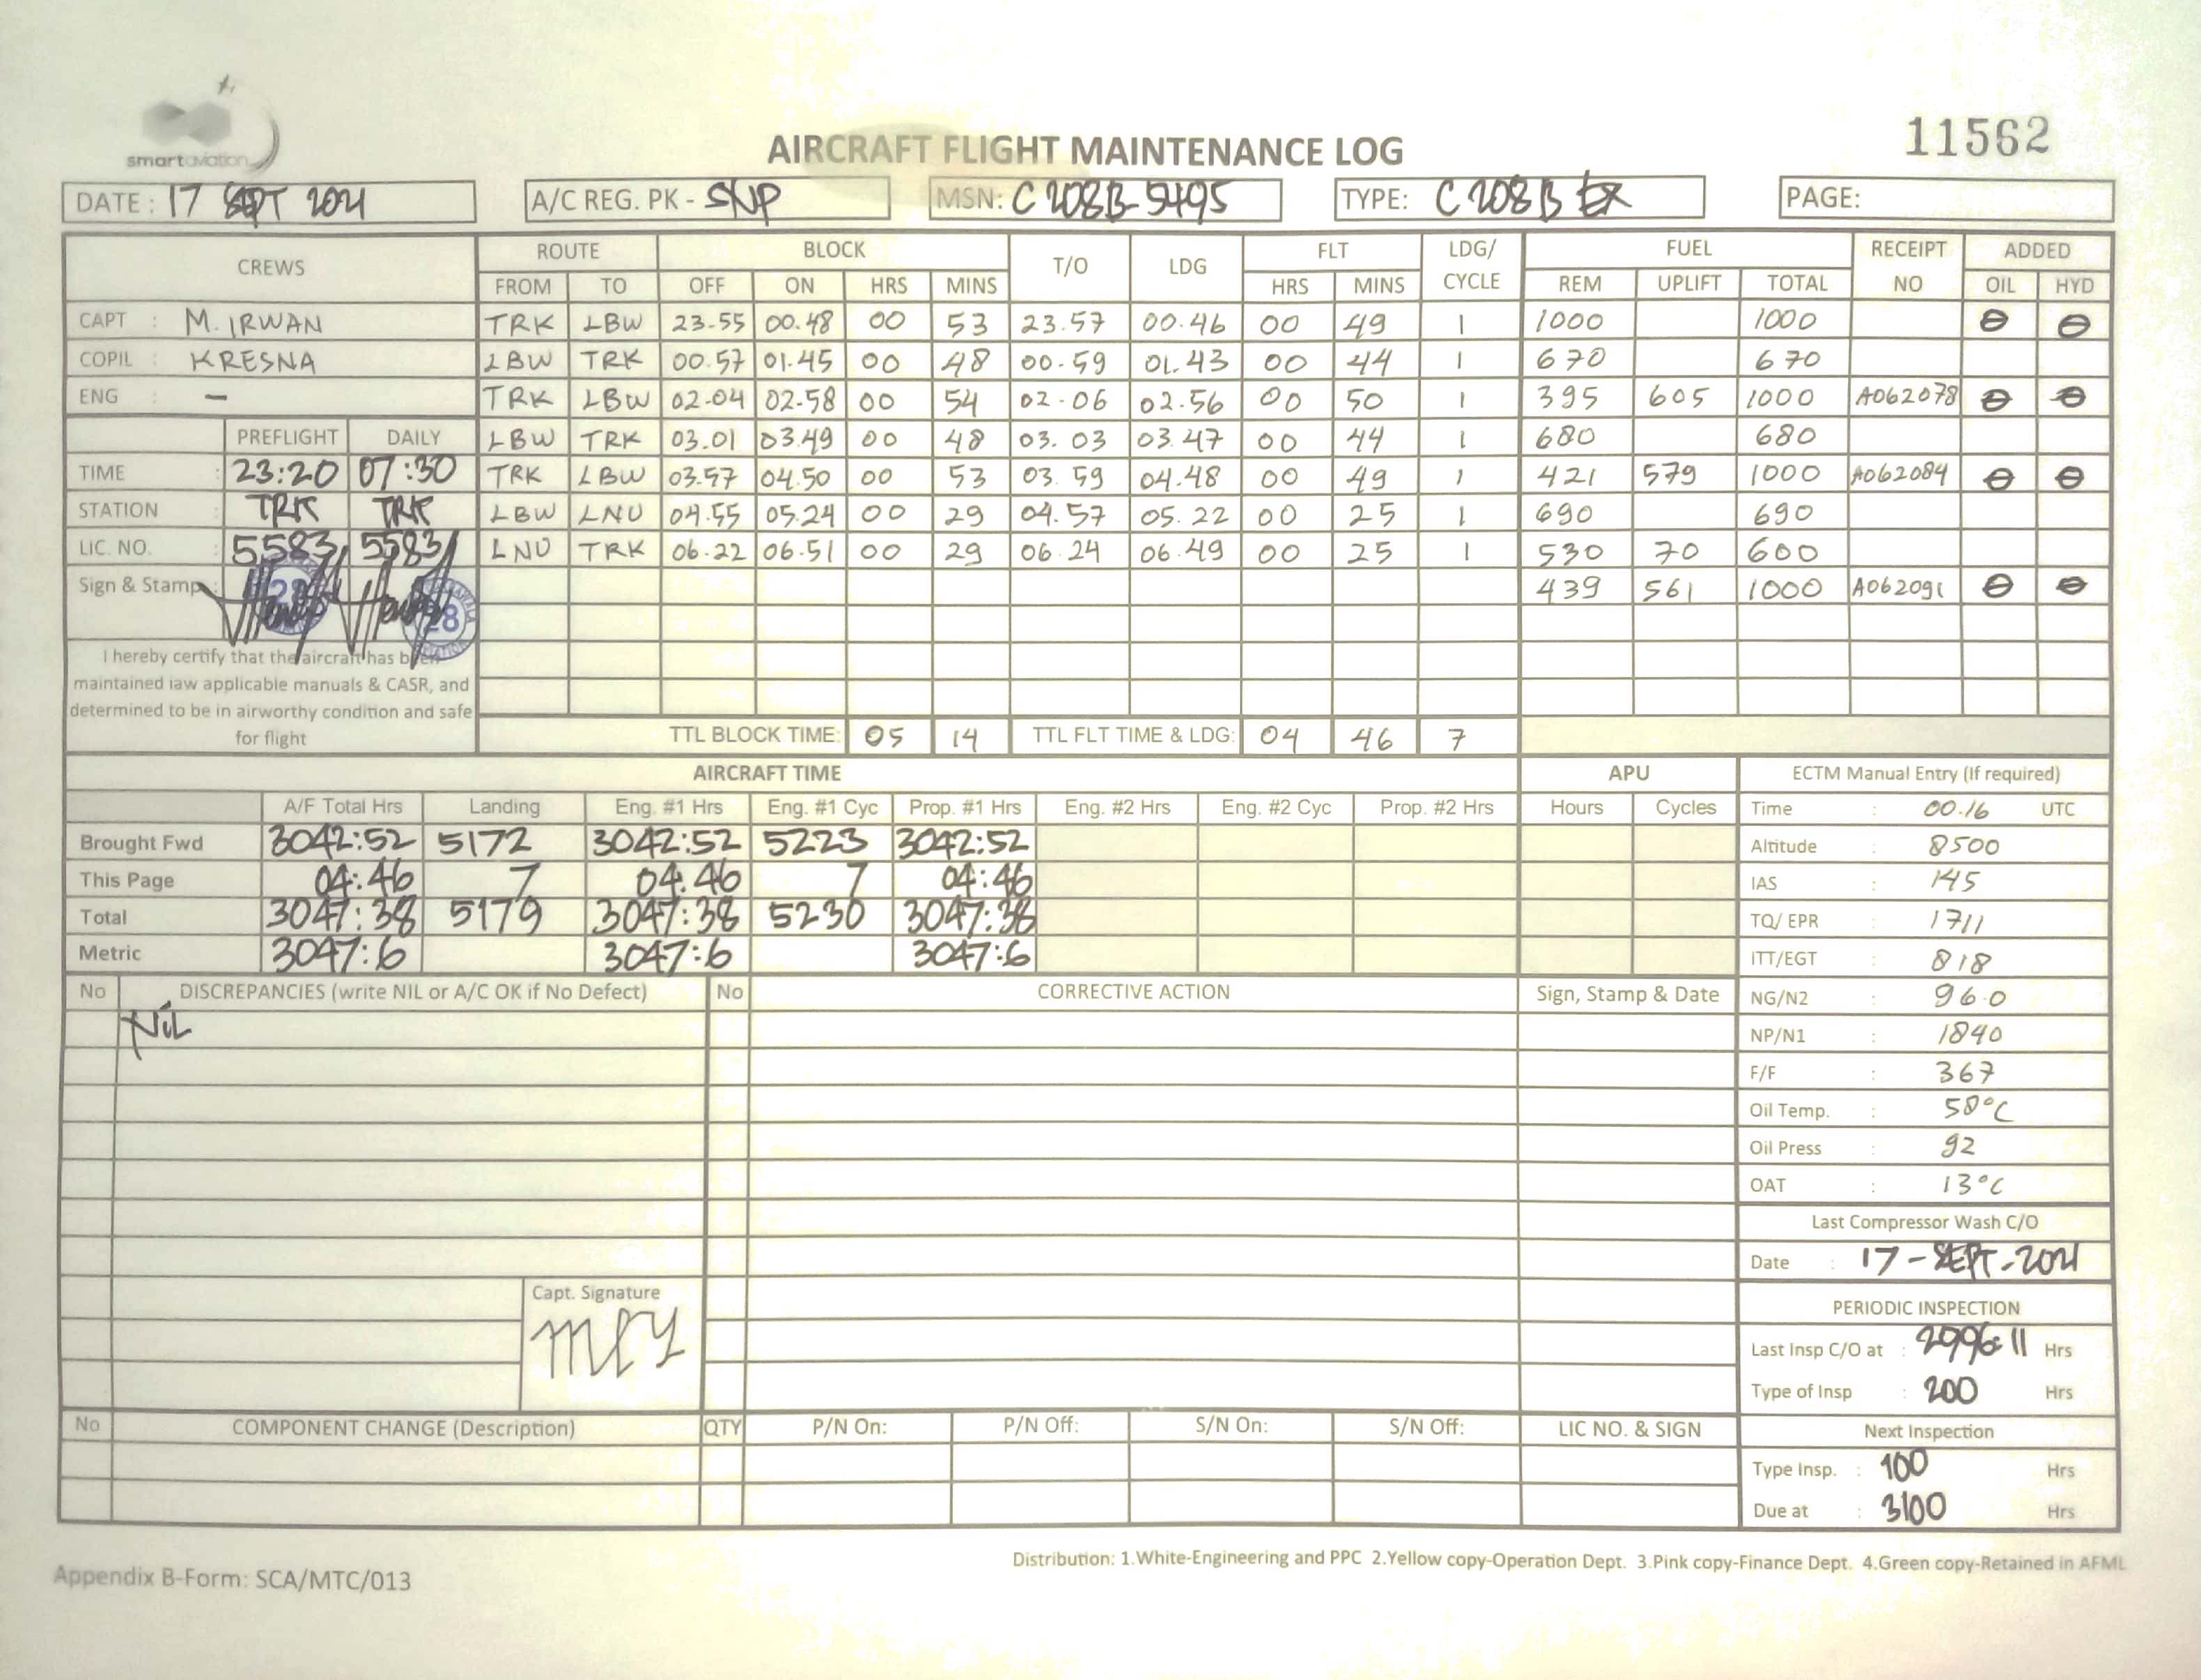 smartaviation
11562
AIRCRAFT FLIGHT MAINTENANCE LOG
DATE : 17 SEPT 2021 A/C REG. PK - SNP MSN: C 208B-5495 TYPE: C 208 B EX PAGE:
CREWS ROUTE BLOCK T/O LDG FLT LDG/ CYCLE FUEL RECEIPT NO ADDED
FROM TO OFF ON HRS MINS HRS MINS REM UPLIFT TOTAL OIL HYD
CAPT : M. IRWAN TRK LBW 23.55 00.48 00 53 23.57 00.46 00 49 1 1000 1000 0 0
COPIL : KRESNA LBW TRK 00.57 01.45 00 48 00.59 01.43 00 44 1 670 670
ENG : - TRK LBW 02.04 02.58 00 54 02.06 02.56 00 50 1 395 605 1000 A062078 0 0
PREFLIGHT DAILY LBW TRK 03.01 03.49 00 48 03.03 03.47 00 44 1 680 680
TIME : 23:20 07:30 TRK LBW 03.57 04.50 00 53 03.59 04.48 00 49 1 421 579 1000 A062084 0 0
STATION : TRK TRK LBW LNU 04.55 05.24 00 29 04.57 05.22 00 25 1 690 690
LIC. NO. : 5583 5583 LNU TRK 06.22 06.51 00 29 06.24 06.49 00 25 1 530 70 600
Sign & Stamp : 28 28 439 561 1000 A062091 0 0
I hereby certify that the aircraft has been
maintained iaw applicable manuals & CASR, and
determined to be in airworthy condition and safe
for flight
TTL BLOCK TIME: 05 14 TTL FLT TIME & LDG: 04 46 7
AIRCRAFT TIME APU ECTM Manual Entry (If required)
A/F Total Hrs Landing Eng. #1 Hrs Eng. #1 Cyc Prop. #1 Hrs Eng. #2 Hrs Eng. #2 Cyc Prop. #2 Hrs Hours Cycles Time : 00.16 UTC
Brought Fwd 3042:52 5172 3042:52 5223 3042:52 Altitude : 8500
This Page 04:46 7 04:46 7 04:46 IAS : 145
Total 3047:38 5179 3047:38 5230 3047:38 TQ/ EPR : 1711
Metric 3047:6 3047:6 3047:6 ITT/EGT : 818
No DISCREPANCIES (write NIL or A/C OK if No Defect) No CORRECTIVE ACTION Sign, Stamp & Date NG/N2 : 96.0
NiL NP/N1 : 1840
F/F : 367
Oil Temp. : 58°C
Oil Press : 92
OAT : 13°C
Last Compressor Wash C/O
Date : 17-SEPT-2021
Capt. Signature
PERIODIC INSPECTION
Last Insp C/O at : 2996:11 Hrs
Type of Insp : 200 Hrs
No COMPONENT CHANGE (Description) QTY P/N On: P/N Off: S/N On: S/N Off: LIC NO. & SIGN Next Inspection
Type Insp. : 100 Hrs
Due at : 3100 Hrs
Appendix B-Form: SCA/MTC/013
Distribution: 1.White-Engineering and PPC 2.Yellow copy-Operation Dept. 3.Pink copy-Finance Dept. 4.Green copy-Retained in AFML